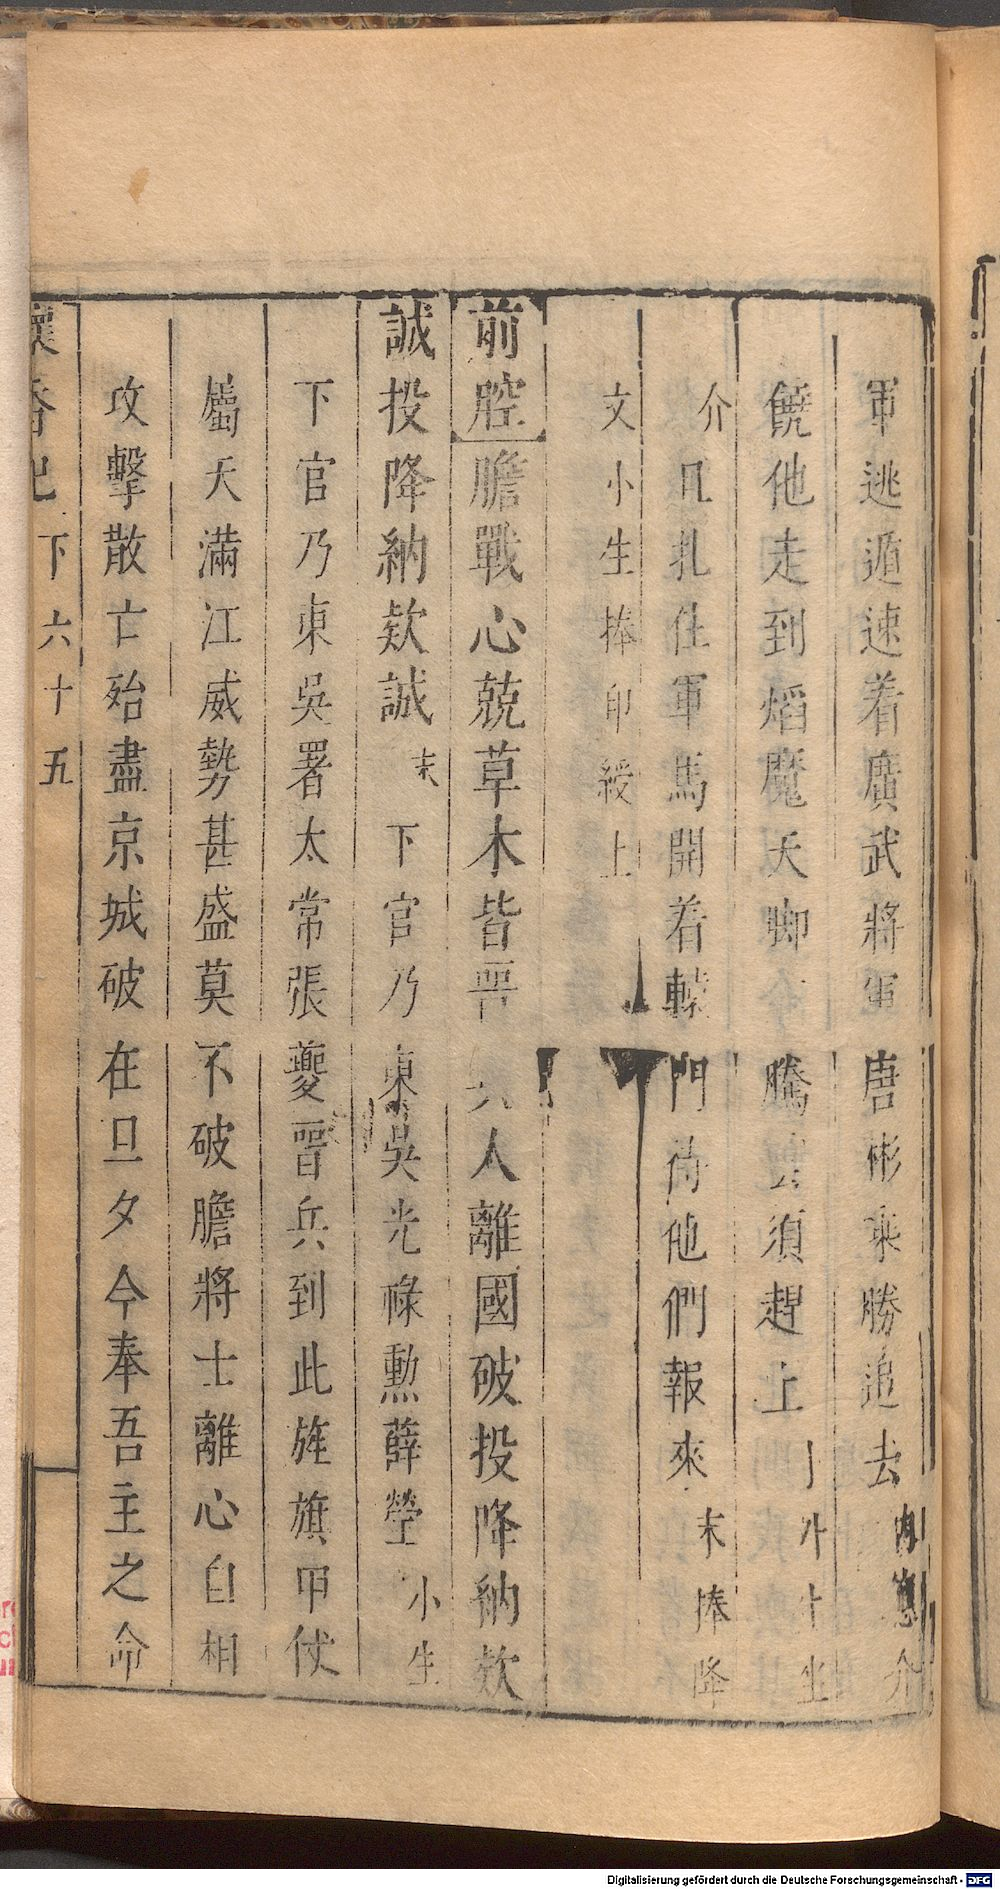 軍逃遁速着廣武將軍唐彬乘勝追去內應介
饒他走到熖魔天脚騰雲須趕上
介且扎住軍馬開着轅門待他們報來末捧降
文小生捧印綬上
前腔膽戰心兢草木皆晉兵人離國破投降納欵
誠投降納欵誠末下官乃東吳光祿勲薛瑩小生
下官乃東吳署太常張夔晋兵到此旌旗甲仗
屬天滿江威勢甚盛莫不破膽將士離心自相
攻擊散亡殆盡京城破在旦夕今奉吾主之命
懷香記下六十五
Digitalisierung gefördert durch die Deutsche Forschungsgemeinschaft - DFG